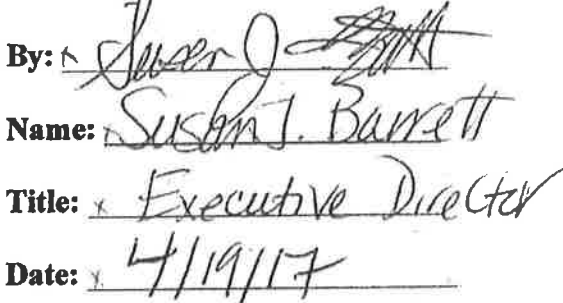 By: x Susan J
Name: x Susan J. Barrett
Title: x Executive Director
Date: x 4/19/17